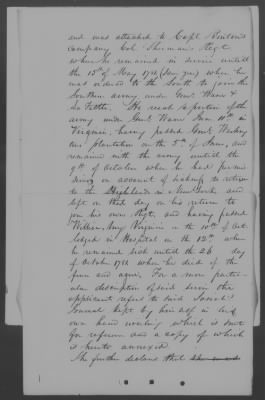 and was attached to Capt. Bulons
Company Col. Sherman Regt
where he remained in service until
the 15th of May 1781 (Jan yrs) when he
was ordered to the South to join the
Southern army under Genl Wane &
La Fiette. He reach a portion of the
army under Genl Wane June 10th in
Virginia, having passed Genl Washing
tons plantation on the 5th of June, and
remained with the army until the
9th of October when he had permis
sion on account of sickness to return
to the Highlands in New York and
left on that day on his return to
join his own Regt, and having passed
Williamsburg Virginia on the 10th of Oct.
lodged in Hospital on the 12th where
he remained sick until the 26 day
of October 1781 when he died of the
fever and ague. For a more partic-
ular description of said service the
applicant refers to said
Journal Kept by himself in his
own hand writing which is sent
for reference and a copy of which
is hereto annexed.
She further declares that she